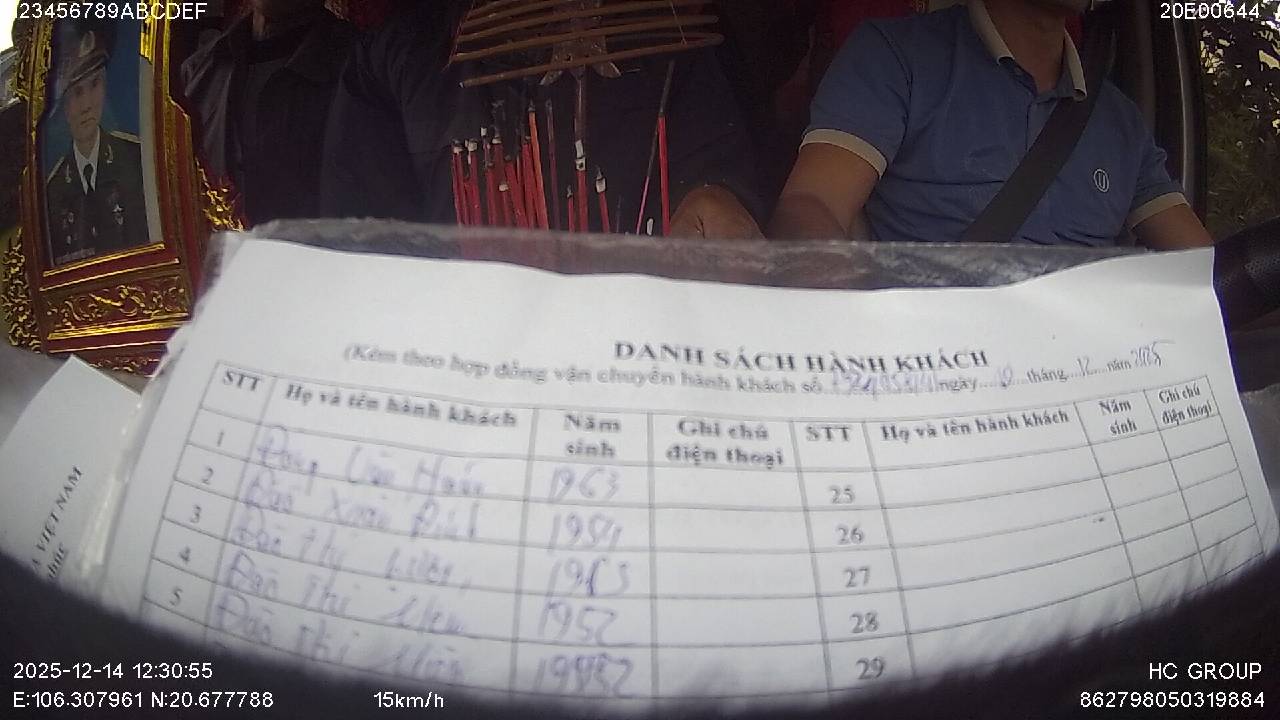 123456789ABCDEF
20E00644
DANH SÁCH HÀNH KHÁCH
(Kèm theo hợp đồng vận chuyển hành khách số ngày....10....tháng...12....năm 2025
STT Họ và tên hành khách Năm sinh Ghi chú điện thoại STT Họ và tên hành khách Năm sinh Ghi chú điện thoại
1 Văn 1963 25
2 Đào Xuân 1954 26
3 Đào Thị 1963 27
4 Đào Thị 1952 28
5 Đào Thị 29
VIỆT NAM
2025-12-14 12:30:55
E:106.307961 N:20.677788
15km/h
HC GROUP
862798050319884